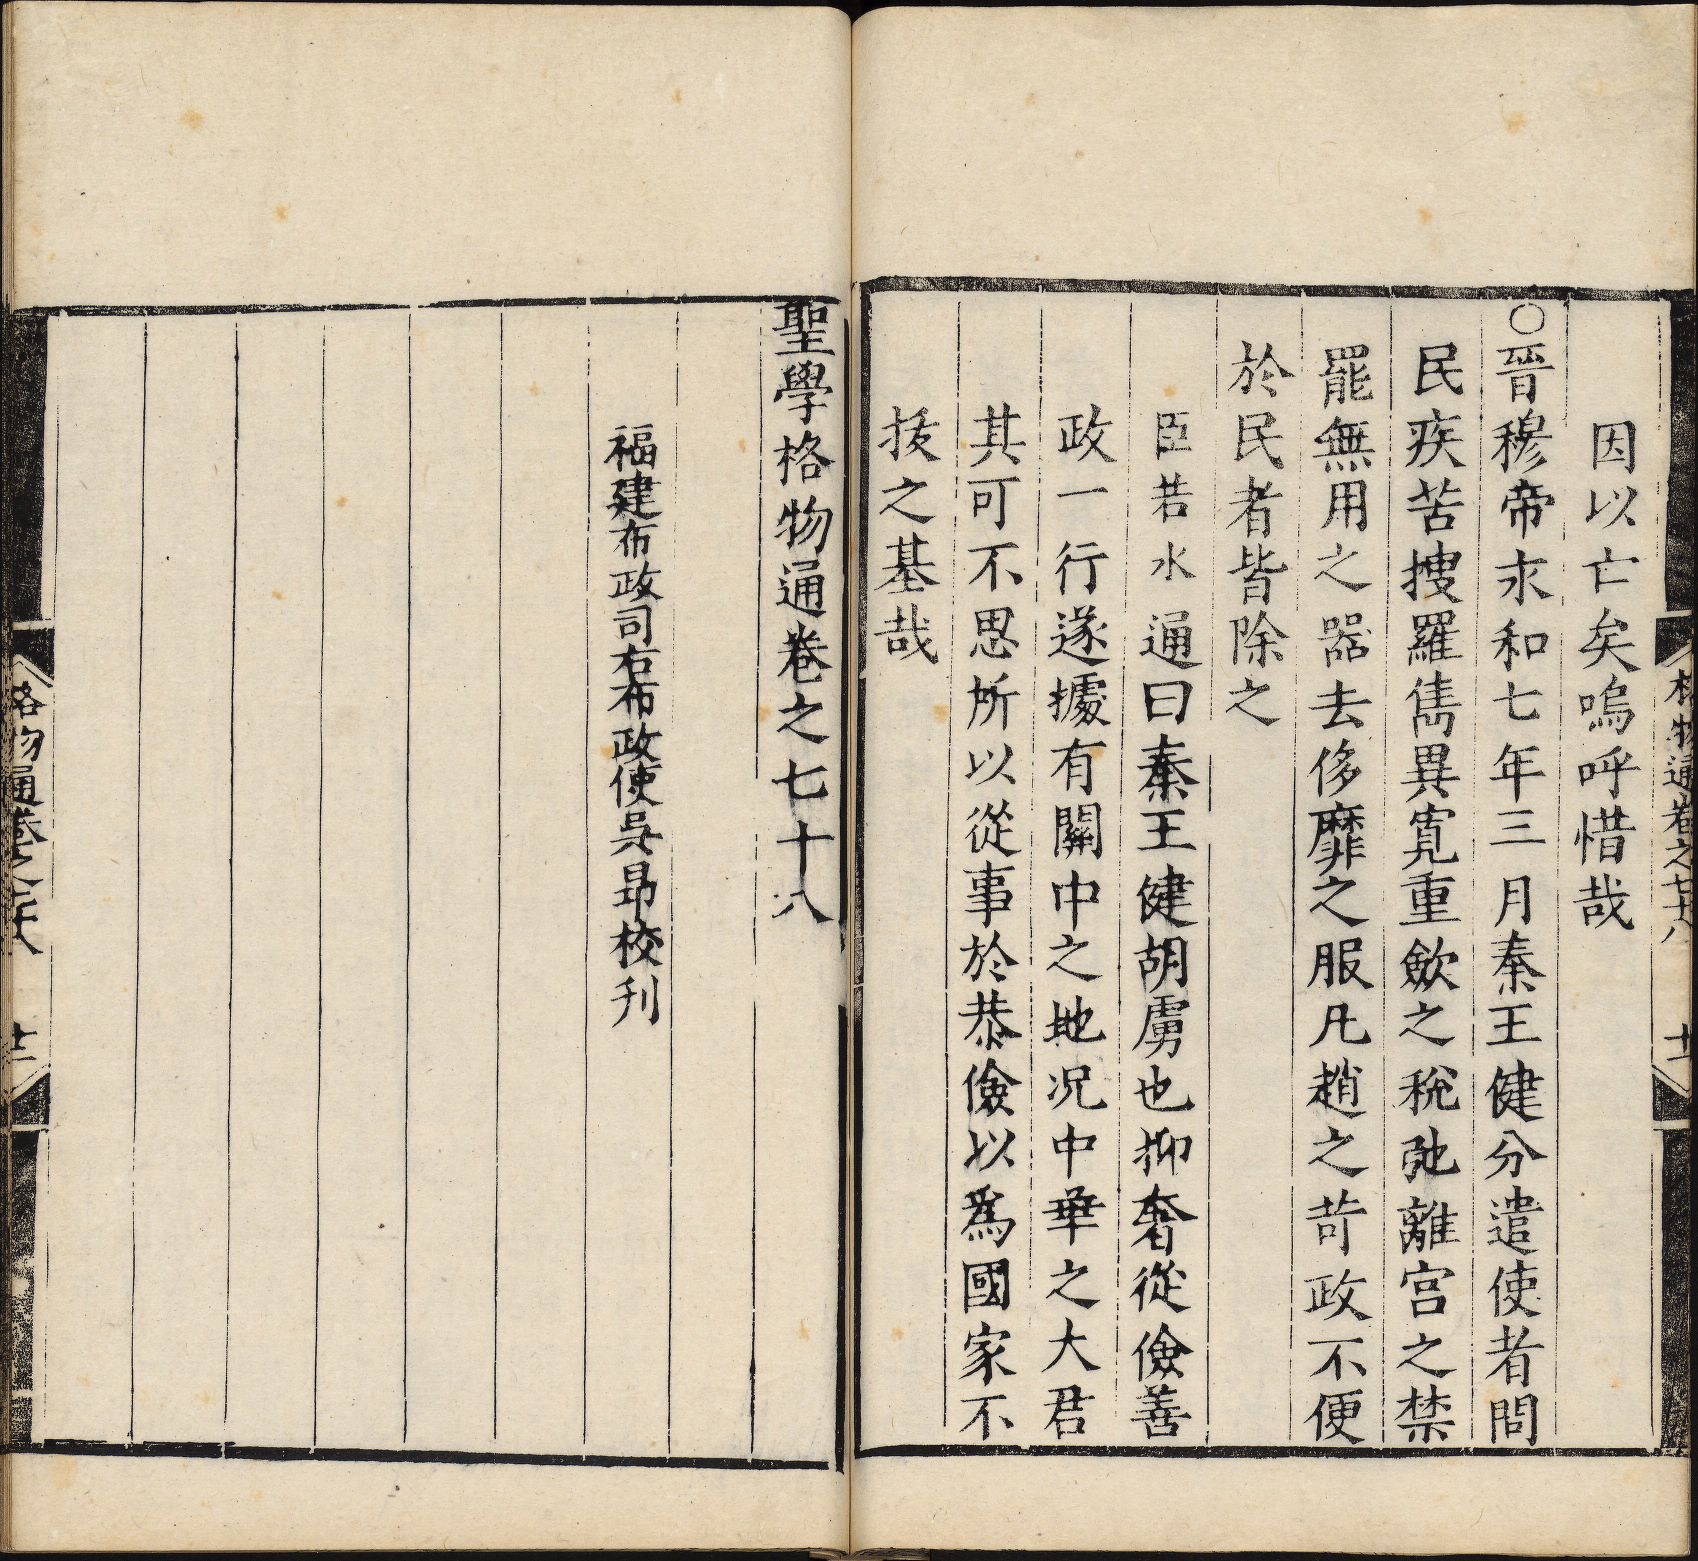 因以亡矣嗚呼惜哉
〇晉穆帝永和七年三月秦王健分遣使者問
民疾苦搜羅儁異寛重歛之稅弛離宫之禁
罷無用之器去侈靡之服凡趙之苛政不便
於民者皆除之
臣若水通曰秦王健胡虜也抑奢從儉善
政一行遂據有關中之地况中華之大君
其可不思所以從事於恭儉以爲國家不
拔之基哉
格物通卷之七十八 十一
聖學格物通卷之七十八
福建布政司右布政使吳昻校刊
格物通卷之七十八 十二